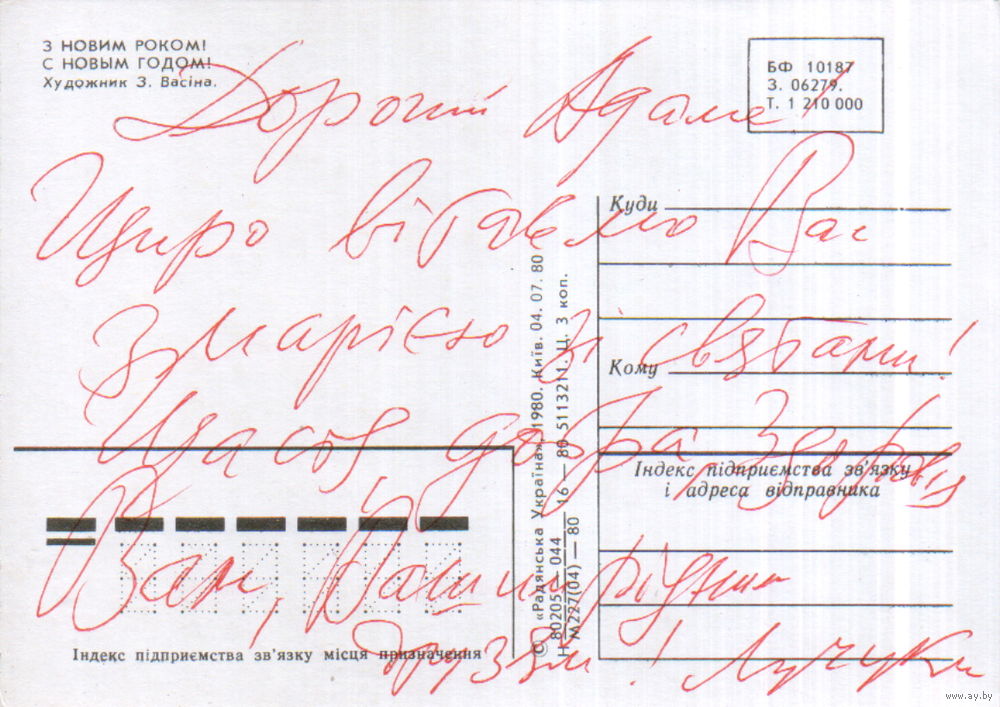 З НОВИМ РОКОМ!
С НОВЫМ ГОДОМ!
Художник З. Васіна.
БФ 10187
З. 06279.
Т. 1 210 000
Дорогий Адаме!
Щиро вітаємо Вас
з Марією зі святами!
Щастя, добра, здоров'я
Вам, Вашим рідним
друзям! Лучуки
Куди
Кому
Індекс підприємства зв'язку
і адреса відправника
Індекс підприємства зв'язку місця призначення
© «Радянська Україна», 1980. Київ. 04. 07. 80
Н 80205—044 16 — 80 5113211. Ц. 3 коп.
М227(04)—80
www.ay.by